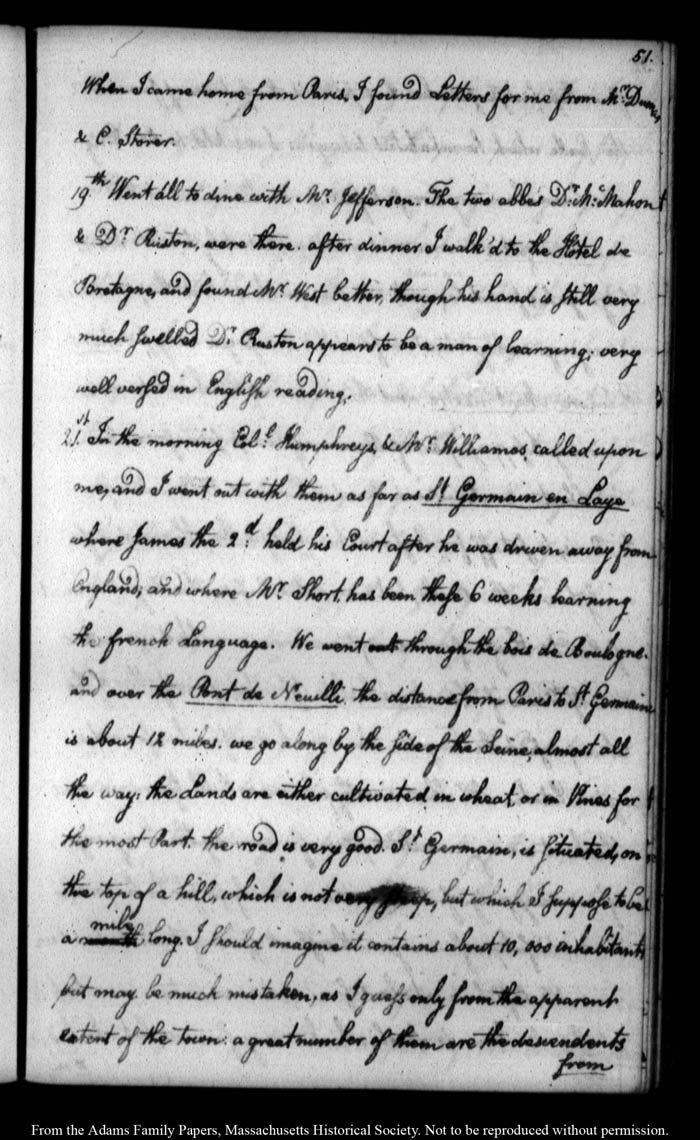 51.
When I came home from Paris, I found Letters for me from Mr.
& C. Storer.
19th Went all to dine with Mr. Jefferson. The two abbés Dr. McMahon
& Dr Ruston, were there. after dinner I walk'd to the Hôtel de
Bretagne, and found Mr. West better, though his hand is still very
much swelled Dr. Ruston appears to be a man of learning: very
well versed in English reading.
21.st In the morning Col.l Humphreys, & Mr. Williamos, called upon
me, and I went out with them as far as St. Germain en Laye
where James the 2.d held his Court after he was driven away from
England; and where Mr. Short, has been these 6 weeks learning
the french Language. We went out through the bois de Boulogne.
and over the Pont de Neuilli. the distance from Paris to St. Germain
is about 12 miles. we go along by the side of the Seine, almost all
the way: the Lands are either cultivated in wheat, or in Vines for
the most Part. the road is very good. St Germain, is situated, on
the top of a hill, which is not very steep, but which I suppose to be
a mile long. I should imagine it contains about 10,000 inhabitants
but may be much mistaken, as I guess only from the apparent
extent of the town: a great number of them are the descendents
from
From the Adams Family Papers, Massachusetts Historical Society. Not to be reproduced without permission.